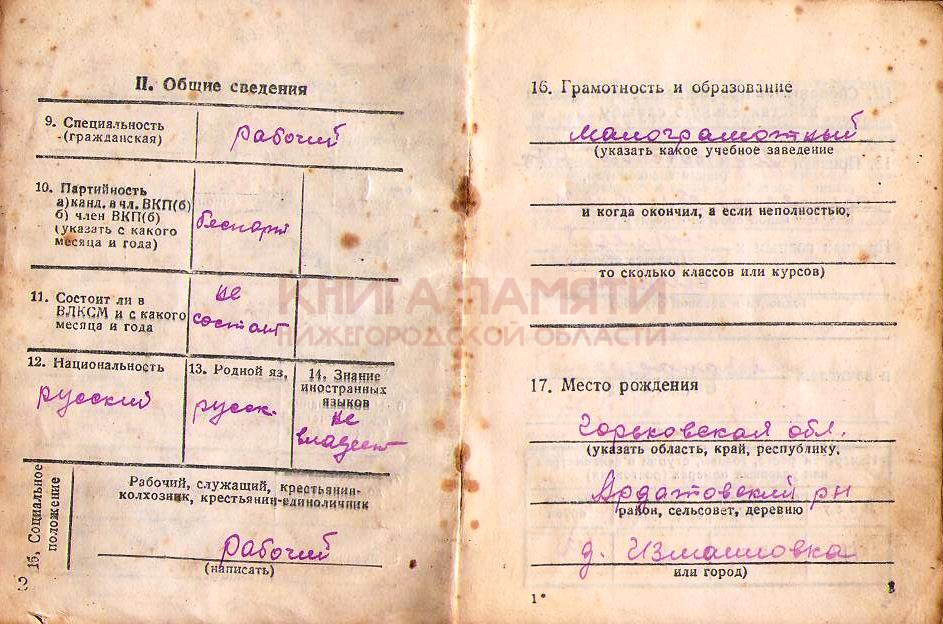 II. Общие сведения
9. Специальность
(гражданская)
рабочий
10. Партийность
а) канд. в чл. ВКП(б)
б) член ВКП(б)
(указать с какого
месяца и года)
беспарт
11. Состоит ли в
ВЛКСМ и с какого
месяца и года
не
состоит
12. Национальность
русский
13. Родной яз.
русск.
14. Знание
иностранных
языков
не
владеет
15. Социальное
положение
Рабочий, служащий, крестьянин-
колхозник, крестьянин-единоличник
рабочий
(написать)
2
16. Грамотность и образование
малограмотный
(указать какое учебное заведение
и когда окончил, а если неполностью,
то сколько классов или курсов)
17. Место рождения
Горьковская обл.
(указать область, край, республику,
Ардатовский рн
район, сельсовет, деревню
д. Измаиловка
или город)
1*
3
КНИГА ПАМЯТИ
НИЖЕГОРОДСКОЙ ОБЛАСТИ